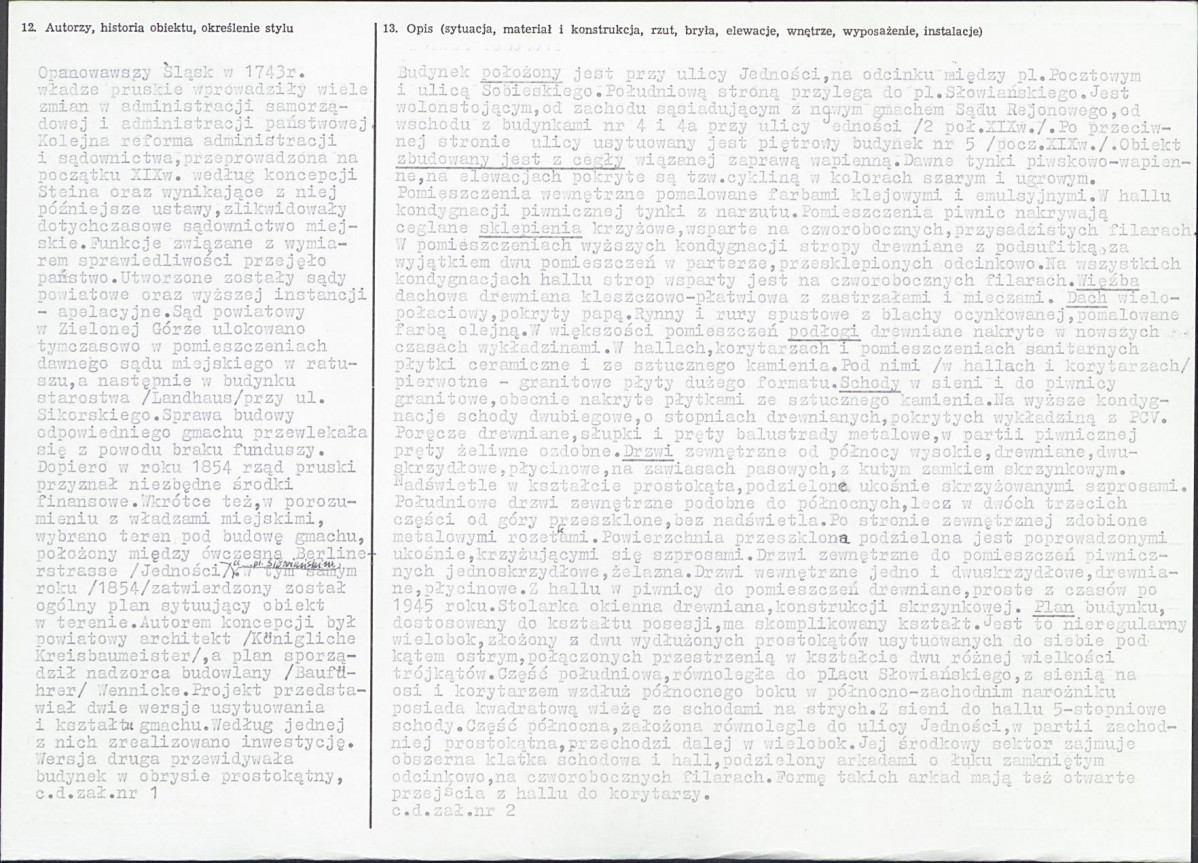 12. Autorzy, historia obiektu, określenie stylu
Opanowawszy Śląsk w 1743r.
władze pruskie wprowadziły wiele
zmian w administracji samorzą-
dowej i administracji państwowej.
Kolejna reforma administracji
i sądownictwa,przeprowadzona na
początku XIXw. według koncepcji
Steina oraz wynikające z niej
późniejsze ustawy,zlikwidowały
dotychczasowe sądownictwo miej-
skie.Funkcje związane z wymia-
rem sprawiedliwości przejęło
państwo.Utworzone zostały sądy
powiatowe oraz wyższej instancji
- apelacyjne.Sąd powiatowy
w Zielonej Górze ulokowano
tymczasowo w pomieszczeniach
dawnego sądu miejskiego w ratu-
szu,a następnie w budynku
starostwa /Landhaus/przy ul.
Sikorskiego.Sprawa budowy
odpowiedniego gmachu przewlekała
się z powodu braku funduszy.
Dopiero w roku 1854 rząd pruski
przyznał niezbędne środki
finansowe.Wkrótce też,w porozu-
mieniu z władzami miejskimi,
wybrano teren pod budowę gmachu,
położony między ówczesną Berline-
rstrasse /Jedności/ a pl. Słowiańskim. w tym samym
roku /1854/zatwierdzony został
ogólny plan sytuujący obiekt
w terenie.Autorem koncepcji był
powiatowy architekt /Königliche
Kreisbaumeister/,a plan sporzą-
dził nadzorca budowlany /Baufü-
hrer/ Wennicke.Projekt przedsta-
wiał dwie wersje usytuowania
i kształtu gmachu.Według jednej
z nich zrealizowano inwestycję.
Wersja druga przewidywała
budynek w obrysie prostokątny,
c.d.zał.nr 1
13. Opis (sytuacja, materiał i konstrukcja, rzut, bryła, elewacje, wnętrze, wyposażenie, instalacje)
Budynek położony jest przy ulicy Jedności,na odcinku między pl.Pocztowym
i ulicą Sobieskiego.Południową stroną przylega do pl.Słowiańskiego.Jest
wolonstojącym,od zachodu sąsiadującym z nowym gmachem Sądu Rejonowego,od
wschodu z budynkami nr 4 i 4a przy ulicy Jedności /2 poł.XIXw./.Po przeciw-
nej stronie ulicy usytuowany jest piętrowy budynek nr 5 /pocz.XIXw./.Obiekt
zbudowany jest z cegły wiązanej zaprawą wapienną.Dawne tynki piwskowo-wapien-
ne,na elewacjach pokryte są tzw.cykliną w kolorach szarym i ugrowym.
Pomieszczenia wewnętrzne pomalowane farbami klejowymi i emulsyjnymi.W hallu
kondygnacji piwnicznej tynki z narzutu.Pomieszczenia piwnic nakrywają
ceglane sklepienia krzyżowe,wsparte na czworobocznych,przysadzistych filarach.
W pomieszczeniach wyższych kondygnacji stropy drewniane z podsufitką,za
wyjątkiem dwu pomieszczeń w parterze,przesklepionych odcinkowo.Na wszystkich
kondygnacjach hallu strop wsparty jest na czworobocznych filarach.Więźba
dachowa drewniana kleszczowo-płatwiowa z zastrzałami i mieczami. Dach wielo-
połaciowy,pokryty papą.Rynny i rury spustowe z blachy ocynkowanej,pomalowane
farbą olejną.W większości pomieszczeń podłogi drewniane nakryte w nowszych
czasach wykładzinami.W hallach,korytarzach i pomieszczeniach sanitarnych
płytki ceramiczne i ze sztucznego kamienia.Pod nimi /w hallach i korytarzach/
pierwotne - granitowe płyty dużego formatu.Schody w sieni i do piwnicy
granitowe,obecnie nakryte płytkami ze sztucznego kamienia.Na wyższe kondyg-
nacje schody dwubiegowe,o stopniach drewnianych,pokrytych wykładziną z PCV.
Poręcze drewniane,słupki i pręty balustrady metalowe,w partii piwnicznej
pręty żeliwne ozdobne.Drzwi zewnętrzne od północy wysokie,drewniane,dwu-
skrzydłowe,płycinowe,na zawiasach pasowych,z kutym zamkiem skrzynkowym.
Nadświetle w kształcie prostokąta,podzielone ukośnie skrzyżowanymi szprosami.
Południowe drzwi zewnętrzne podobne do północnych,lecz w dwóch trzecich
części od góry przeszklone,bez nadświetla.Po stronie zewnętrznej zdobione
metalowymi rozetami.Powierzchnia przeszklona podzielona jest poprowadzonymi
ukośnie,krzyżującymi się szprosami.Drzwi zewnętrzne do pomieszczeń piwnicz-
nych jednoskrzydłowe,żelazna.Drzwi wewnętrzne jedno i dwuskrzydłowe,drewnia-
ne,płycinowe.Z hallu w piwnicy do pomieszczeń drewniane,proste z czasów po
1945 roku.Stolarka okienna drewniana,konstrukcji skrzynkowej. Plan budynku,
dostosowany do kształtu posesji,ma skomplikowany kształt.Jest to nieregularny
wielobok,złożony z dwu wydłużonych prostokątów usytuowanych do siebie pod
kątem ostrym,połączonych przestrzenią w kształcie dwu różnej wielkości
trójkątów.Część południowa,równoległa do placu Słowiańskiego,z sienią na
osi i korytarzem wzdłuż północnego boku w północno-zachodnim narożniku
posiada kwadratową wieżę ze schodami na strych.Z sieni do hallu 5-stopniowe
schody.Część północna,założona równolegle do ulicy Jedności,w partii zachod-
niej prostokątna,przechodzi dalej w wielobok.Jej środkowy sektor zajmuje
obszerna klatka schodowa i hall,podzielony arkadami o łuku zamkniętym
odcinkowo,na czworobocznych filarach.Formę takich arkad mają też otwarte
przejścia z hallu do korytarzy.
c.d.zał.nr 2